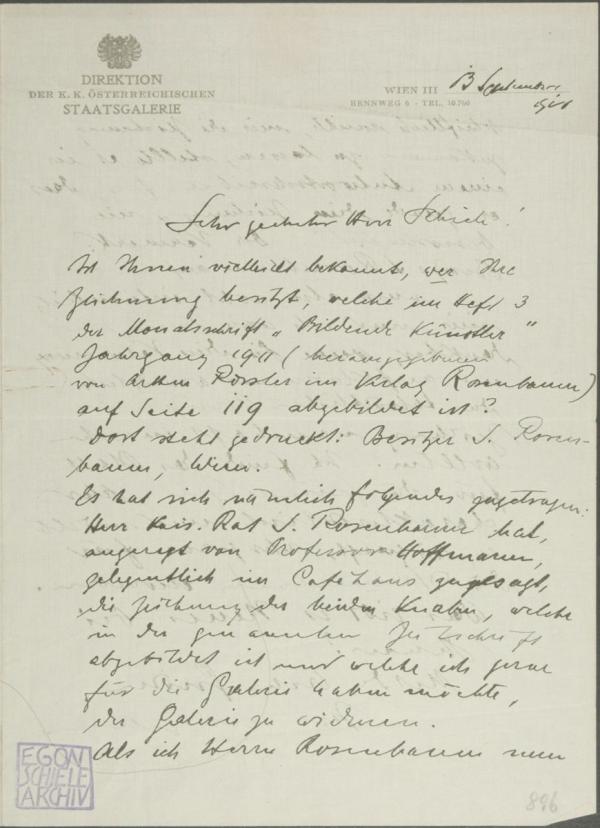 DIREKTION
DER K. K. ÖSTERREICHISCHEN
STAATSGALERIE
WIEN III
RENNWEG 6 - TEL. 10.760
13 September
Sehr geehrter Herr Schiele!
Ist Ihnen vielleicht bekannt, wer Ihre
Zeichnung besitzt, welche im Heft 3
der Monatsschrift „Bildende Künstler"
Jahrgang 1911 (herausgegeben
von Arthur Rössler im Verlag Rosenbaum)
auf Seite 119 abgebildet ist?
Dort steht gedruckt: Besitzer S. Rosen-
baum, Wien.
Es hat sich nämlich folgendes zugetragen:
Herr Kais. Rat S. Rosenbaum hat,
angeregt von Professor Hoffmann,
gelegentlich im Caféhaus zugesagt,
die Zeichnung der beiden Knaben, welche
in der genannten Zeitschrift
abgebildet ist und welche ich gerne
für die Galerie haben möchte,
der Galerie zu widmen.
Als ich Herrn Rosenbaum nun
EGON
SCHIELE
ARCHIV
896